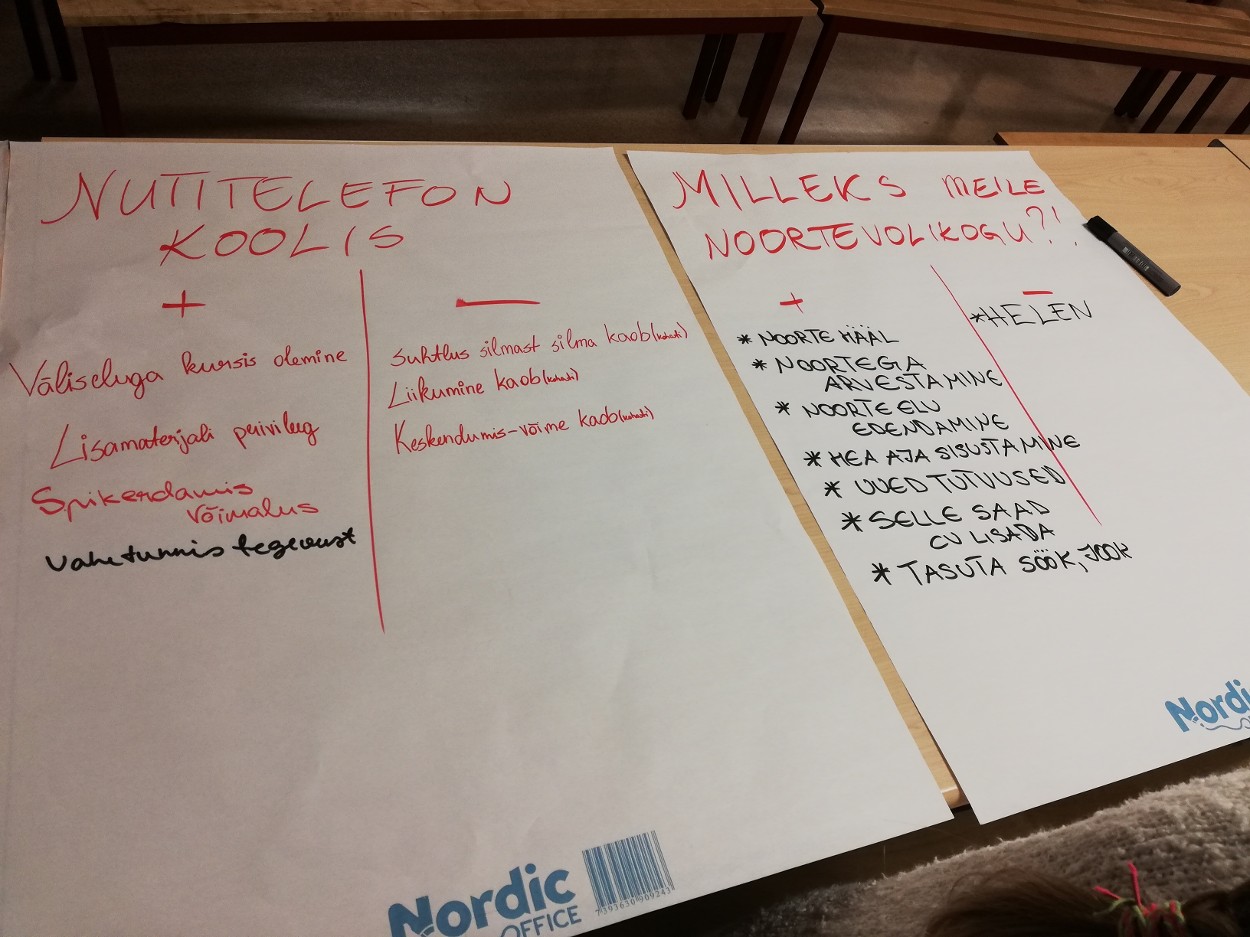 NUTITELEFON
KOOLIS
+
—
Väliseluga kursis olemine
Lisamaterjali privileeg
Spikerdamis
võimalus
vahetunnis tegevust
Suhtlus silmast silma kaob (kohati)
Liikumine kaob (kohati)
Keskendumis-võime kaob (kohati)
Nordic
OFFICE
7393630909243
MILLEKS MEILE
NOORTEVOLIKOGU?!
+
—
* NOORTE HÄÄL
* NOORTEGA
ARVESTAMINE
* NOORTE ELU
EDENDAMINE
* HEA AJA SISUSTAMINE
* UUED TUTVUSED
* SELLE SAAD
CV LISADA
* TASUTA SÖÖK, JOOK
*HELEN
Nordic